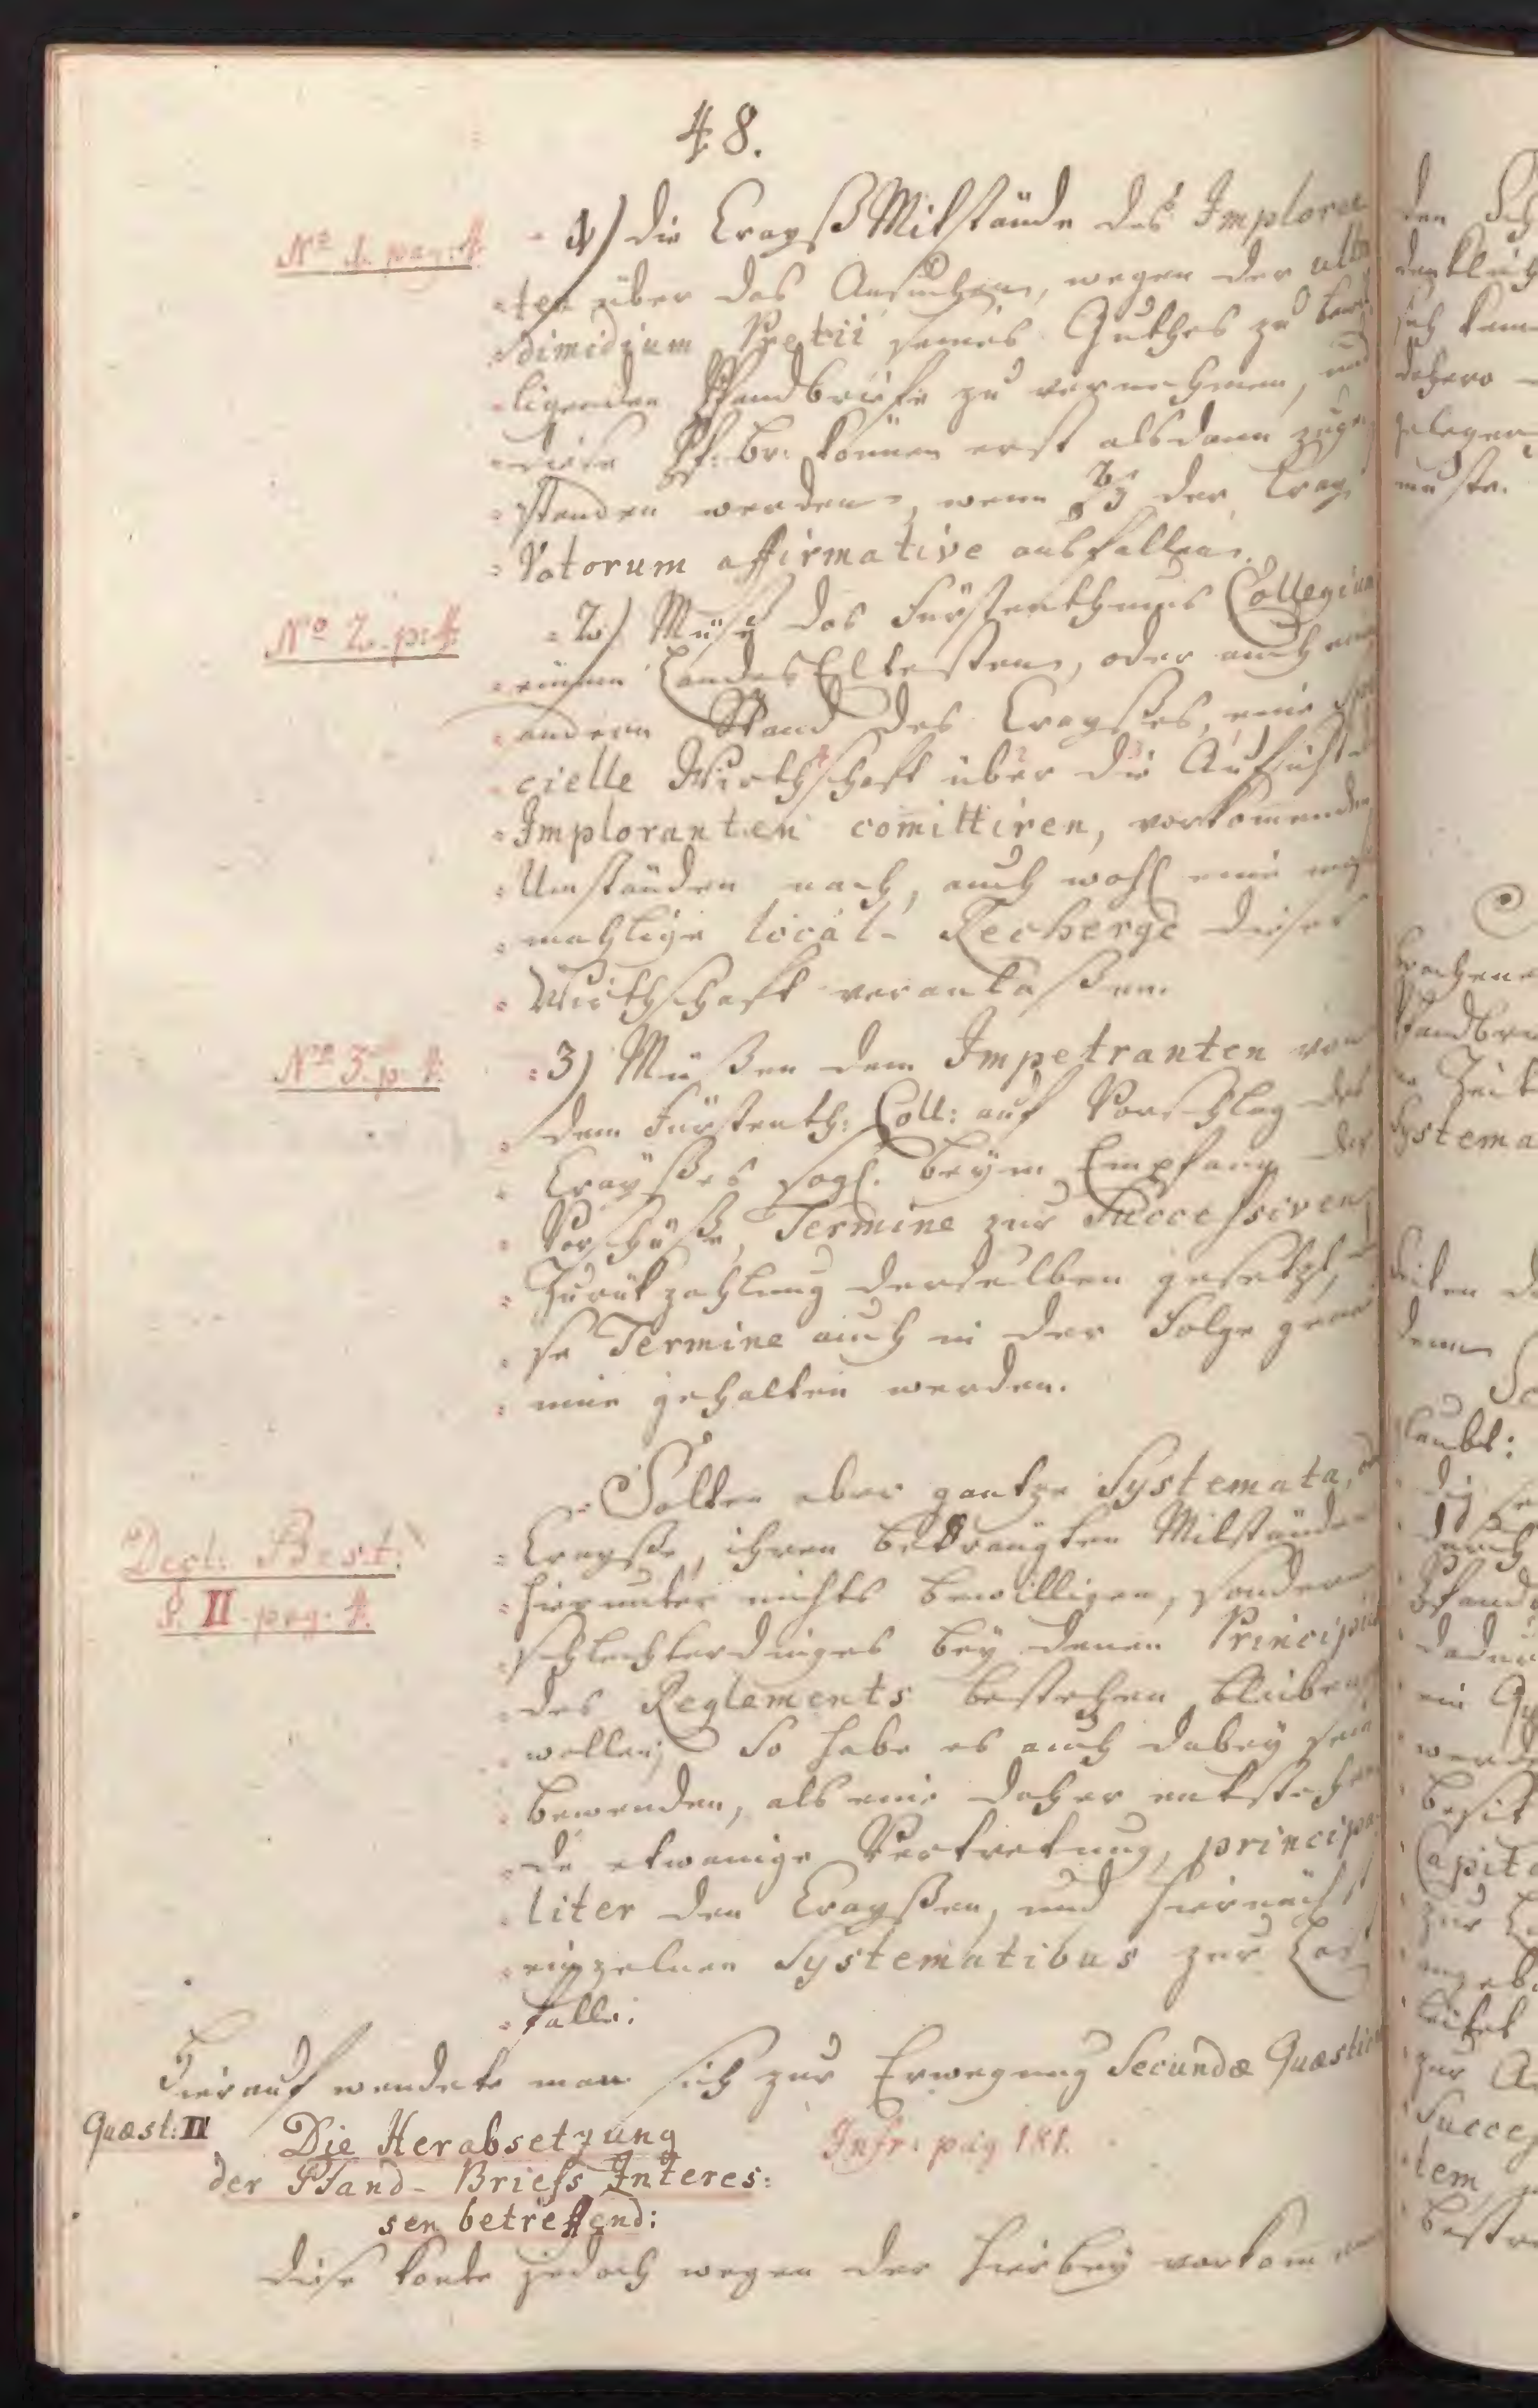 48.
No 1. pag: 4.
1) die Crayß Mitstände des Imploran
ten über das Ansuchen, wegen der ultra
dimidium Pretii seines Guthes zu bewil
ligenden Pfandbriefe zu vernehmen, und
diese Pf: Br: können erst alsdann zuge
standen werden, wenn 2/3 der Crayß
Votorum affirmative ausfallen.
No 2. p: 4.
2) Muß das Fürstenthums Collegium
einen Landes Eltesten, oder auch einen
andern Stand des Crayßes, eine Spe
cielle Wirthschaft über die Aufsicht des
Imploranten comittiren, vorkommenden
Umständen nach, auch wohl eine
mahlige local-Recherge dieser
Wirthschaft veranlaßen.
No 3. p. 4.
3) Müßen dem Impetranten von
dem Fürstenth: Coll: auf Vorschlag des
Crayßes sogl. beym Empfang der
Vorschüße, Termine zur Successiven
Zurükzahlung derselben gesetzt,
se Termine auch in der Folge genau
inne gehalten werden.
Decl: Best:
P. II pag. 4.
Solten aber gantze Systemata, od
Crayße, ihren bedrängten Mitständen
hierunter nichts bewilligen, sondern
schlechterdinges bey denen Principiis
des Reglements bestehen bleiben
wollen; So habe es auch dabey sein
bewenden, als eine daher entstehen
de etwanige Vertretung, principa
liter den Crayßen, und hiernächst
einzelnen Systematibus zur Last
falle.
Hierauf wendete man sich zur Erwegung Secundæ Quæstion
Quæst: II
Die Herabsetzung
der Pfand-Briefs Interes:
sen betreffend:
Infr: pag 181.
Diese konte jedoch wegen der hierbey vorkommen